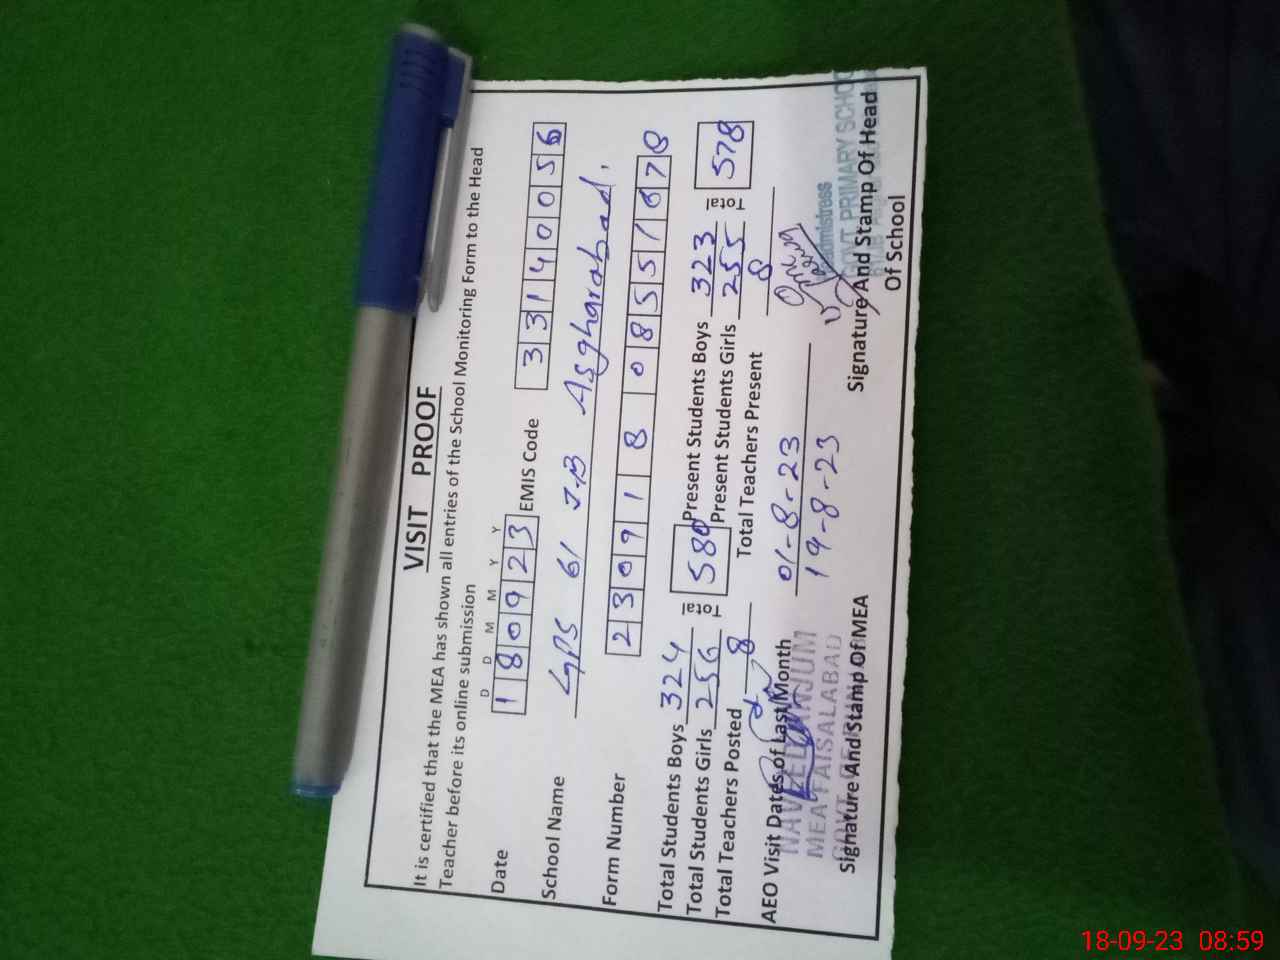 VISIT PROOF
It is certified that the MEA has shown all entries of the School Monitoring Form to the Head
Teacher before its online submission
D D M M Y Y
Date 180923 EMIS Code 33140056
School Name GPS 61 J-B Asgharabad.
Form Number 23091808551678
Total Students Boys 324 Total 580 Present Students Boys 323 Total 578
Total Students Girls 256 Present Students Girls 255
Total Teachers Posted 8 Total Teachers Present 8
AEO Visit Dates of Last Month 01-8-23
19-8-23
NAVEED ANJUM
MEA FAISALABAD
Signature And Stamp Of MEA
GOVT PRIMARY SCHOO
Signature And Stamp Of Head
Of School
18-09-23 08:59